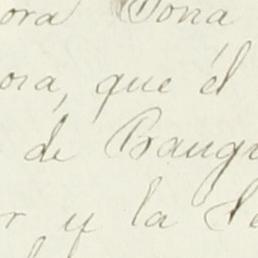 ora Dona
ora, que él
de Baugu
r y la Se